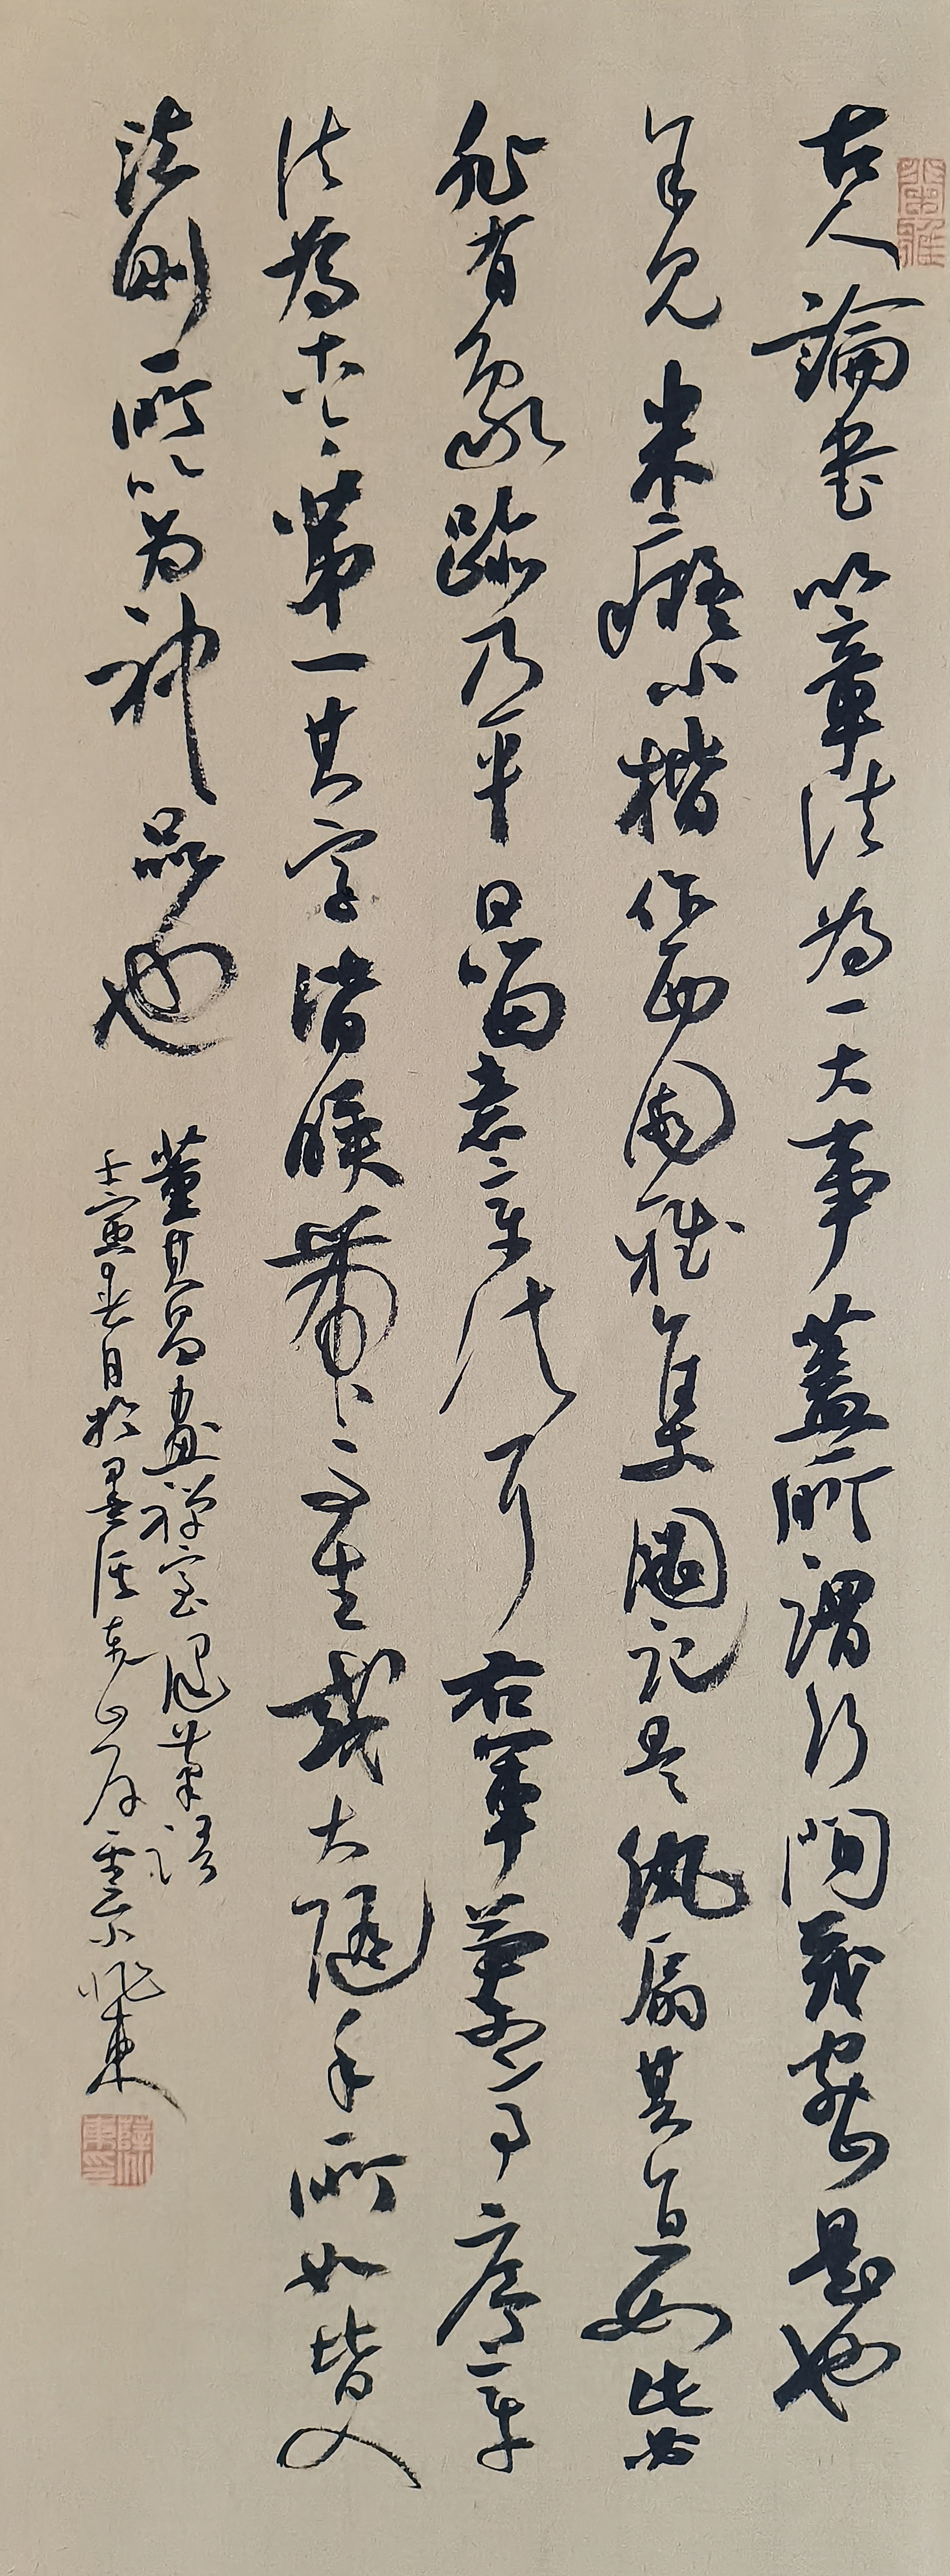 古人論書以章法為一大事蓋所謂行間茂密是也
余見米癡小楷作西園雅集圖記是紈扇其直如弦此必
非有他道乃平日留意章法耳右軍蘭亭序章
法為古今第一其字皆映帶而生或大隨手所如皆入
法則所以為神品也
董其昌畫禪室隨筆語
壬寅春日於墨